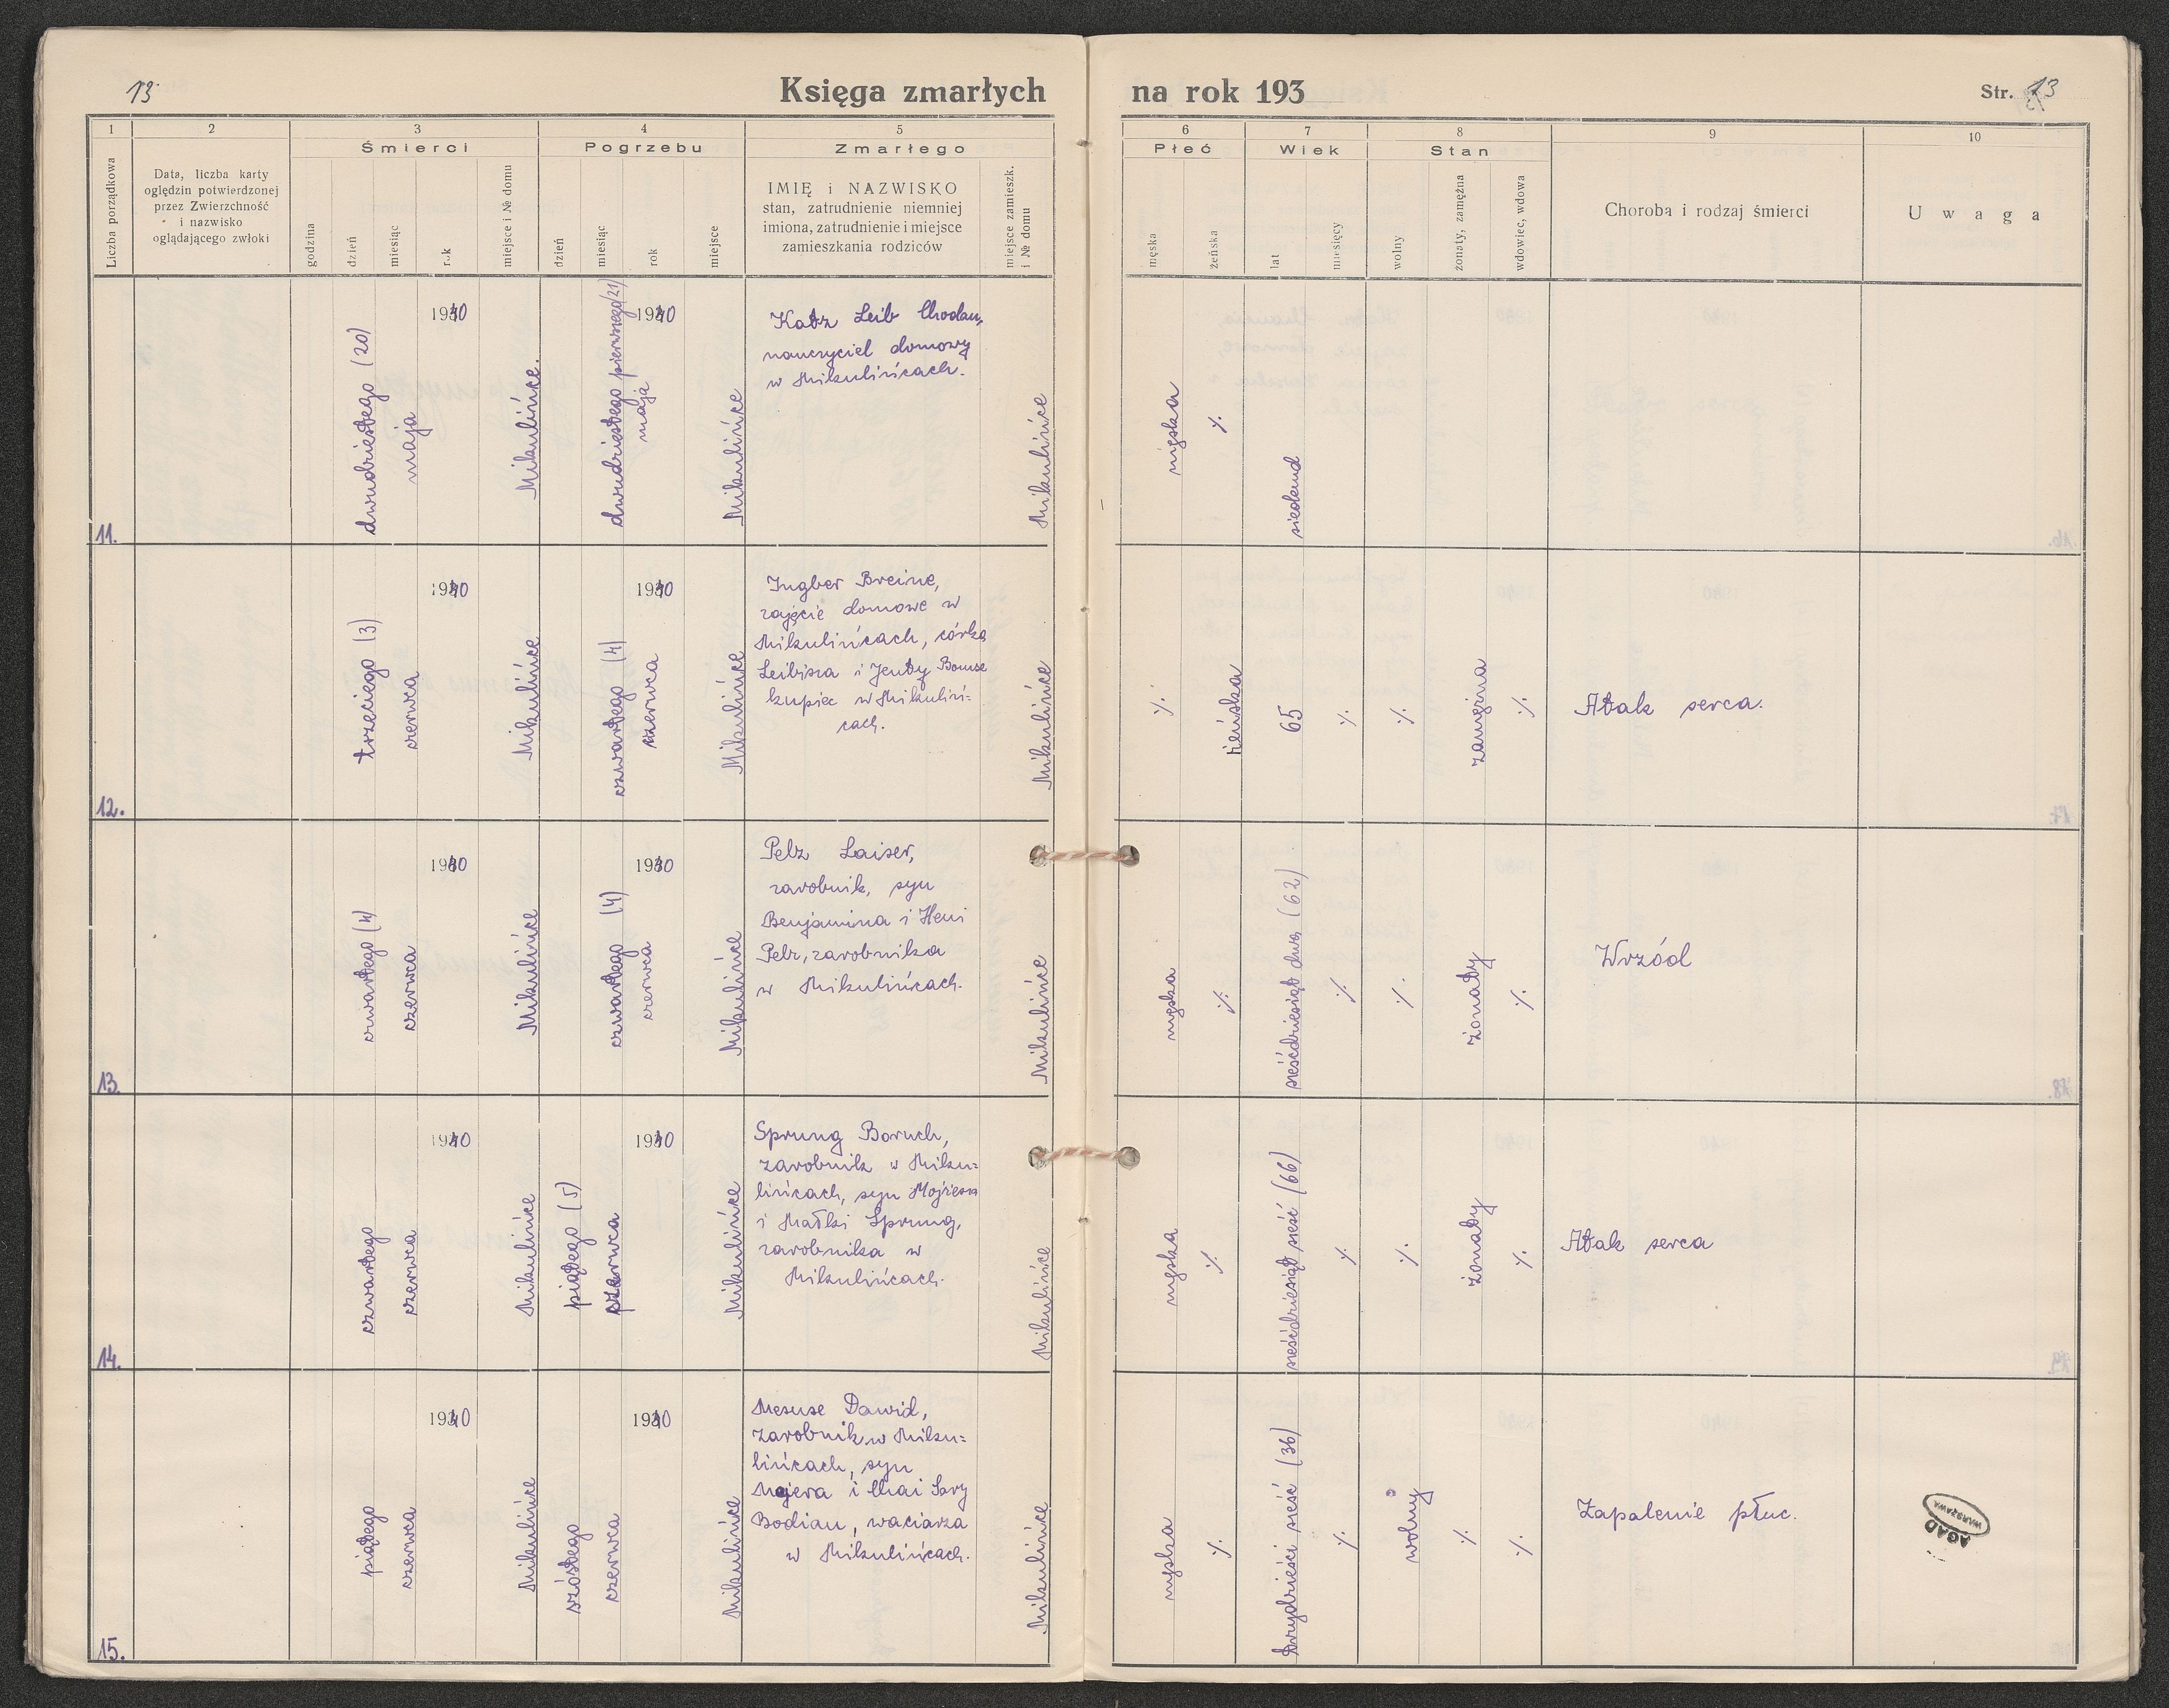 13
Księga zmarłych
na rok 193
Str. 13
1
2
3
4
5
6
7
8
9
10
Śmierci
Pogrzebu
Zmarłego
Płeć
Wiek
Stan
Liczba porządkowa
Data, liczba karty
oględzin potwierdzonej
przez Zwierzchność
i nazwisko
oglądającego zwłoki
godzina
dzień
miesiąc
rok
miejsce i № domu
dzień
miesiąc
rok
miejsce
IMIĘ i NAZWISKO
stan, zatrudnienie niemniej
imiona, zatrudnienie i miejsce
zamieszkania rodziców
miejsce zamieszk.
i № domu
męska
żeńska
lat
miesięcy
wolny
żonaty, zamężna
wdowiec, wdowa
Choroba i rodzaj śmierci
Uwaga
11.
dwudziestego (20)
maja
1940
Mikulińce.
dwudziestego pierwszego (21)
maja
1940
Mikulińce
Katz Leib
nauczyciel domowy
w Mikulińcach.
Mikulińce
męska
./.
12.
trzeciego (3)
czerwca
1940
Mikulińce
czwartego (4)
czerwca
1940
Mikulińce
Ingber Breine,
zajęcie domowe w
Mikulińcach, córka
Leibisza i Jenty
kupiec w Mikuliń=
cach.
Mikulińce
./.
żeńska
65
./.
./.
zamężna
./.
Atak serca.
13.
czwartego (4)
czerwca
1940
Mikulińce
czwartego (4)
czerwca
1940
Mikulińce
Pelz Laiser,
zarobnik, syn
Benjamina i Heni
Pelz, zarobnika
w Mikulińcach.
Mikulińce
męska
./.
sześćdziesiąt dwa (62)
./.
./.
żonaty
./.
Wrzód
14.
czwartego
czerwca
1940
Mikulińce
piątego (5)
czerwca
1940
Mikulińce
Sprung Boruch,
zarobnik w Miku=
lińcach, syn Mojżesza
i Małki Sprung,
zarobnika w
Mikulińcach.
Mikulińce
męska
./.
sześćdziesiąt sześć (66)
./.
./.
żonaty
./.
Atak serca
15.
piątego
czerwca
1940
Mikulińce
szóstego
czerwca
1940
Mikulińce
Mesuse Dawid,
zarobnik w Miku=
lińcach, syn
Majera i Chai Sary
Bodian, waciarza
w Mikulińcach.
Mikulińce
męska
./.
trzydzieści sześć (36)
./.
wolny
./.
./.
Zapalenie płuc.
AGAD
WARSZAWA